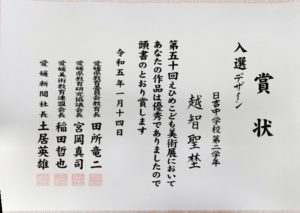 賞状
入選 デザイン
日吉中学校第二学年
越智聖埜
第五十回えひめこども美術展において
あなたの作品は優秀でありましたので
頭書のとおり賞します
令和五年一月十四日
愛媛県教育委員会教育長 田所竜二
愛媛県教育研究協議会長 宮岡真司
愛媛美術教育連盟会長 稲田哲也
愛媛新聞社長 土居英雄